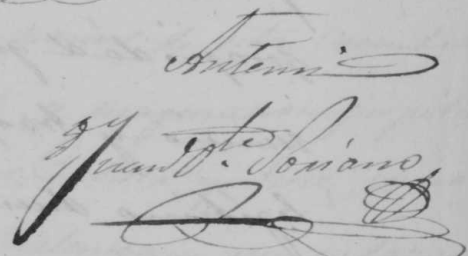 Antemi
Juan Vte. Soriano